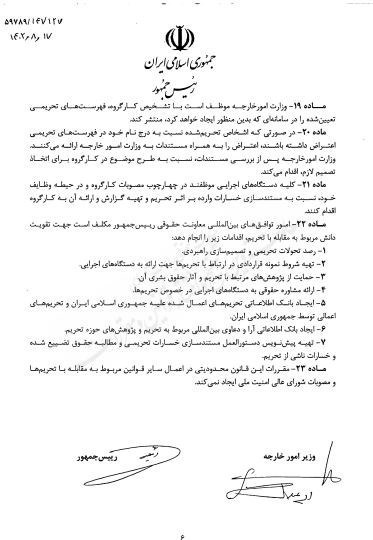 ۵۹۷۸۹/۱۶۷۱۲۷
۱۴۰۲/۸/۱۷
جمهوری اسلامی ایران
رئیس جمهور
مـــاده ۱۹- وزارت امورخارجه موظف است بـا تـشخیص کـارگروه، فهرسـت‌هـای تحریمـی
تعیین‌شده را در سامانه‌ای که بدین منظور ایجاد خواهد کرد، منتشر کند.
ماده ۲۰- در صورتی که اشخاص تحریم‌شده نسبت به درج نام خـود در فهرسـت‌هـای تحریمـی
اعتراض داشته باشند، اعتراض را به همراه مستندات به وزارت امور خارجه ارائه می‌کننـد.
وزارت امورخارجه پـس از بررسـی مـستندات، نـسبت به طـرح موضـوع در کـارگروه بـرای اتخـاذ
تصمیم لازم، اقدام می‌کند.
ماده ۲۱- کلیـه دسـتگاه‌های اجرایی موظفند در چهارچوب مصوبات کارگروه و در حیطـه وظـایف
خود، نسبت به مستندسـازی خسارات وارده بر اثـر تحریـم و تهیه گـزارش و ارائه آن به کارگروه
اقدام کنند.
مـاده ۲۲- امـور توافق‌هـای بین‌المللـی معاونـت حقوقـی رییس‌جمهور مکلـف اسـت جهـت تقویـت
دانش مربوط به مقابله با تحریم، اقدامات زیر را انجام دهد:
۱- رصد تحولات تحریمی و تصمیم‌سازی راهبردی.
۲- تهیه شروط نمونه قراردادی در ارتباط با تحریم‌ها جهت ارائه به دستگاه‌های اجرایی.
۳- حمایت از پژوهش‌های مرتبط با تحریم و آثار حقوق بشری آن.
۴- ارائه مشاوره حقوقی به دستگاه‌های اجرایی در خصوص تحریم‌ها.
۵- ایجـاد بانـک اطلاعاتی تحریم‌های اعمـال شـده علیـه جمهوری اسلامی ایران و تحریم‌های
اعمالی توسط جمهوری اسلامی ایران.
۶- ایجاد بانک اطلاعاتی آرا و دعاوی بین‌المللی مربوط به تحریم و پژوهش‌های حوزه تحریم.
۷- تهیـه پیش‌نویس دستورالعمل مستندسـازی خـسارات تحریمـی و مطالبه حقـوق تضییـع شده
و خسارات ناشی از تحریم.
مـــاده ۲۳- مقـررات ایـن قـانون محدودیتی در اعمال سـایر قـوانین مربـوط به مقابله با تحریم‌هـا
و مصوبات شورای عالی امنیت ملی ایجاد نمی‌کند.
وزیر امور خارجه
رییس‌جمهور
۶